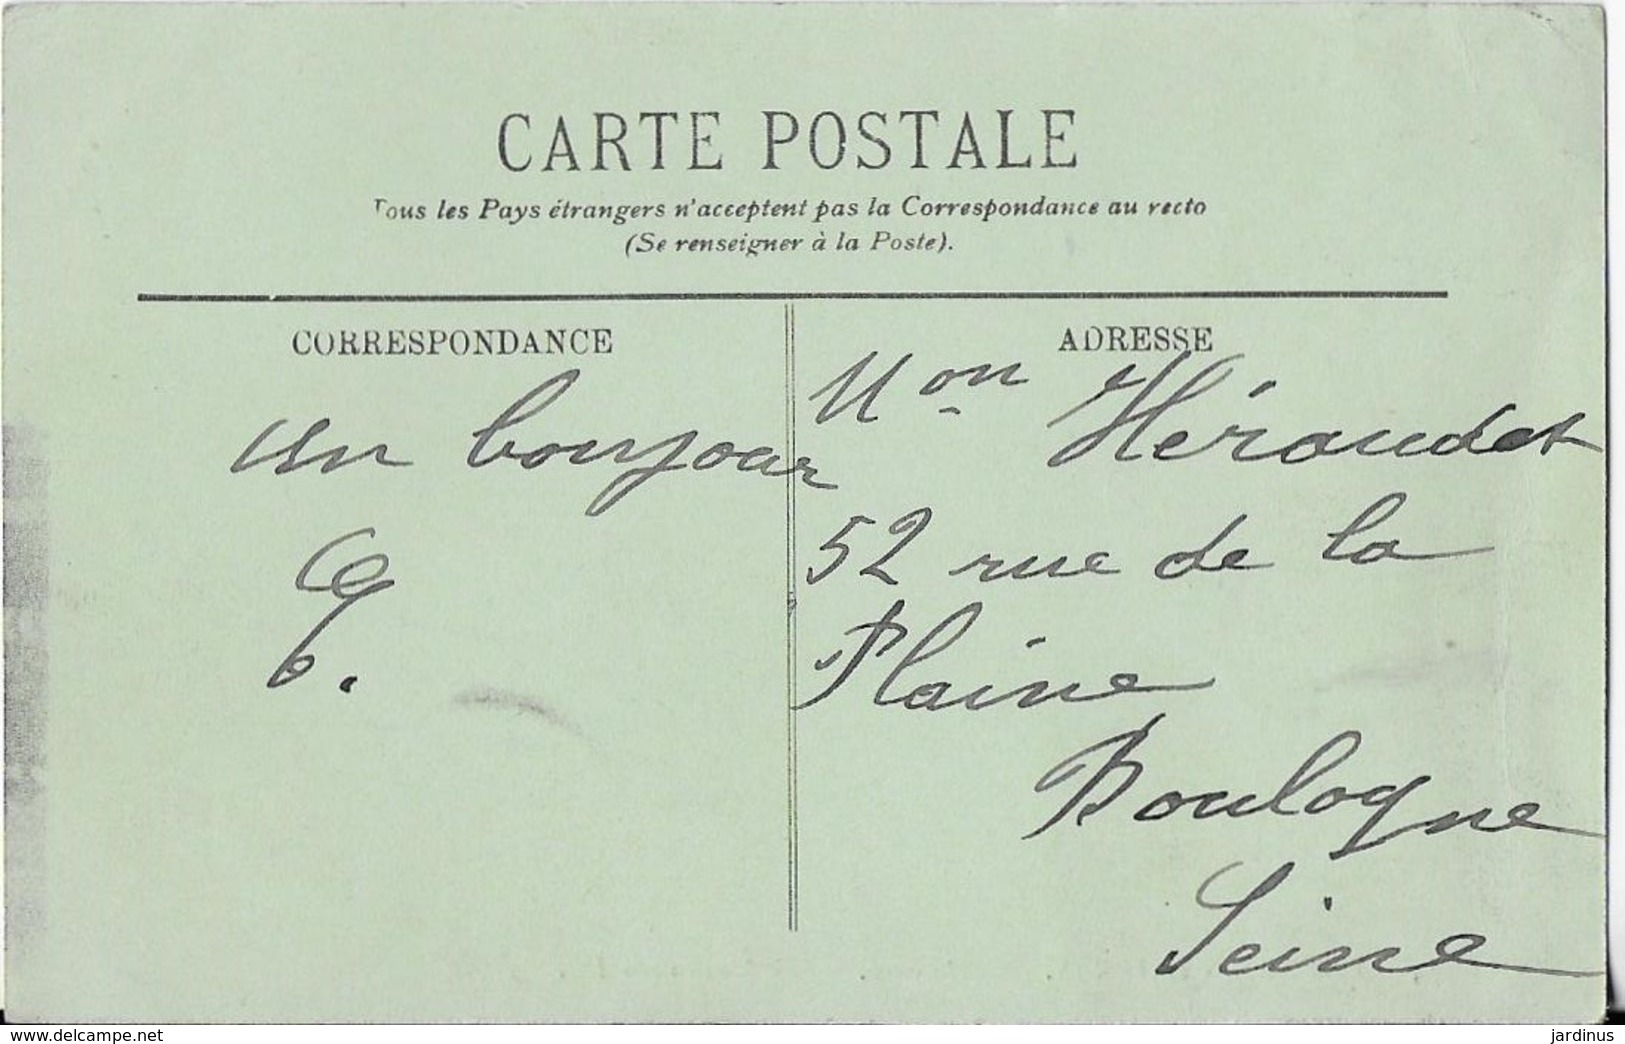 CARTE POSTALE
Tous les Pays étrangers n'acceptent pas la Correspondance au recto
(Se renseigner à la Poste).
CORRESPONDANCE
un bonjour
ADRESSE
Mon Héraudet
52 rue de la
Plaine
Boulogne
Seine
delcampe.net
jardinus